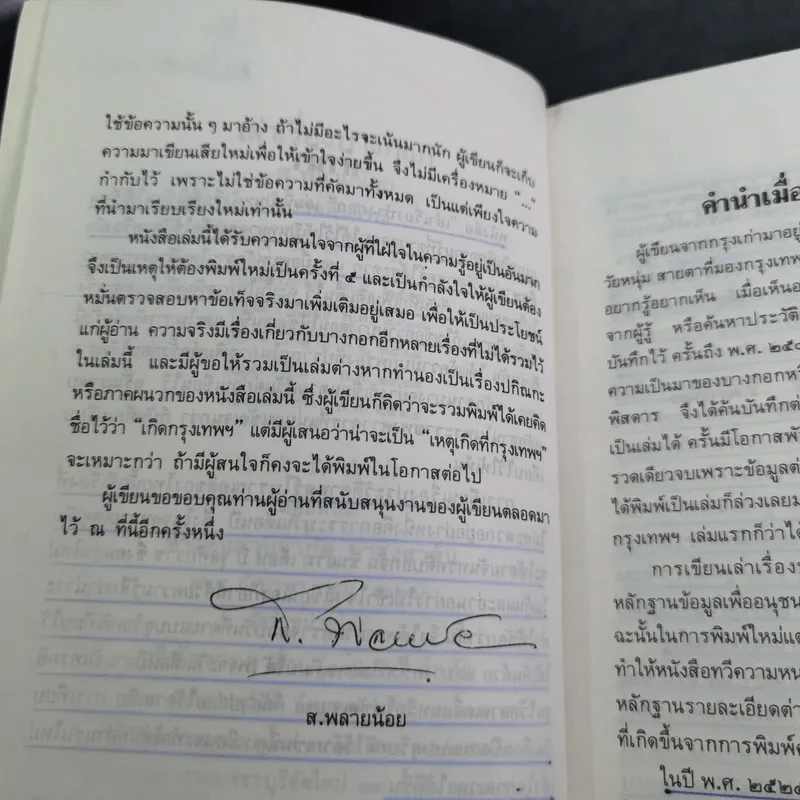 ใช้ข้อความนั้น ๆ มาอ้าง ถ้าไม่มีอะไรจะเน้นมากนัก ผู้เขียนก็จะเก็บ
ความมาเขียนเสียใหม่เพื่อให้เข้าใจง่ายขึ้น จึงไม่มีเครื่องหมาย “...”
กำกับไว้ เพราะไม่ใช่ข้อความที่คัดมาทั้งหมด เป็นแต่เพียงใจความ
ที่นำมาเรียบเรียงใหม่เท่านั้น
หนังสือเล่มนี้ได้รับความสนใจจากผู้ที่ใฝ่ใจในความรู้อยู่เป็นอันมาก
จึงเป็นเหตุให้ต้องพิมพ์ใหม่เป็นครั้งที่ ๕ และเป็นกำลังใจให้ผู้เขียนต้อง
หมั่นตรวจสอบหาข้อเท็จจริงมาเพิ่มเติมอยู่เสมอ เพื่อให้เป็นประโยชน์
แก่ผู้อ่าน ความจริงมีเรื่องเกี่ยวกับบางกอกอีกหลายเรื่องที่ไม่ได้รวมไว้
ในเล่มนี้ และมีผู้ขอให้รวมเป็นเล่มต่างหากทำนองเป็นเรื่องปกิณกะ
หรือภาคผนวกของหนังสือเล่มนี้ ซึ่งผู้เขียนก็คิดว่าจะรวมพิมพ์ได้เคยคิด
ชื่อไว้ว่า “เกิดกรุงเทพฯ” แต่มีผู้เสนอว่าน่าจะเป็น “เหตุเกิดที่กรุงเทพฯ”
จะเหมาะกว่า ถ้ามีผู้สนใจก็คงจะได้พิมพ์ในโอกาสต่อไป
ผู้เขียนขอขอบคุณท่านผู้อ่านที่สนับสนุนงานของผู้เขียนตลอดมา
ไว้ ณ ที่นี้อีกครั้งหนึ่ง
ส. พลายน้อย
ส.พลายน้อย
คำนำเมื่อ
ผู้เขียนจากกรุงเก่ามาอยู่
วัยหนุ่ม สายตาที่มองกรุงเทพ
อยากรู้อยากเห็น เมื่อเห็นอ
จากผู้รู้ หรือค้นหาประวัติ
บันทึกไว้ ครั้นถึง พ.ศ. ๒๕๐
ความเป็นมาของบางกอกหรื
พิสดาร จึงได้ค้นบันทึกต่
เป็นเล่มได้ ครั้นมีโอกาสพั
รวดเดียวจบเพราะข้อมูลต่
ได้พิมพ์เป็นเล่มก็ล่วงเลยม
กรุงเทพฯ เล่มแรกก็ว่าได้
การเขียนเล่าเรื่อง
หลักฐานข้อมูลเพื่ออนุชน
ฉะนั้นในการพิมพ์ใหม่แต่
ทำให้หนังสือทวีความหน
หลักฐานรายละเอียดต่า
ที่เกิดขึ้นจากการพิมพ์ค
ในปี พ.ศ. ๒๕๒๔